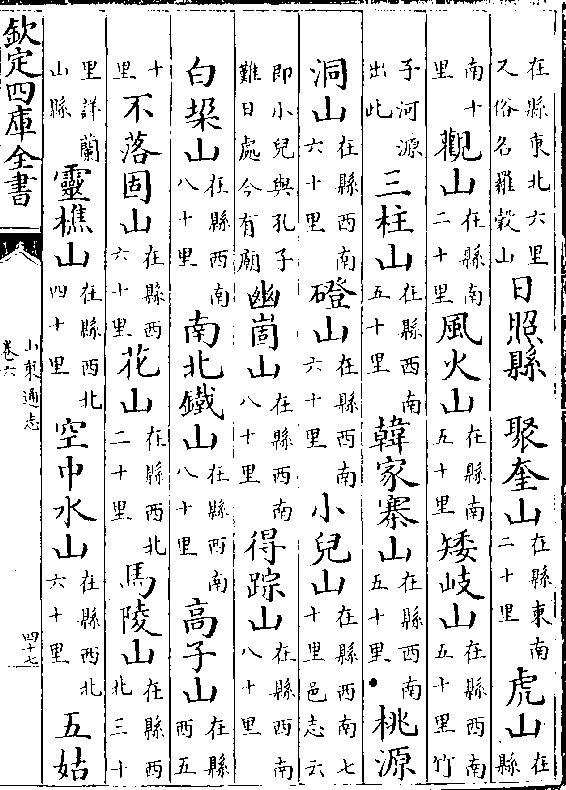 在縣東北六里又俗名羅穀山日照縣　聚奎山在縣東南二十里虎山在縣
南十里觀山在縣南二十里風火山在縣南五十里矮岐山在縣西南五十里竹
子河源出此三柱山在縣西南五十里韓家寨山在縣西南五十里桃源
洞山在縣西南六十里磴山在縣西南六十里小兒山在縣西南七十里邑志云
即小兒與孔子難日處今有廟幽崮山在縣西南八十里得踪山在縣西南八十里
白槊山在縣西南八十里南北鐵山在縣西南八十里高子山在縣西五
十里不落固山在縣西六十里花山在縣西北二十里馬陵山在縣西北三十
里詳蘭山縣靈樵山在縣西北四十里空中水山在縣西北六十里五姑
欽定四庫全書
山東通志
卷六
四十七